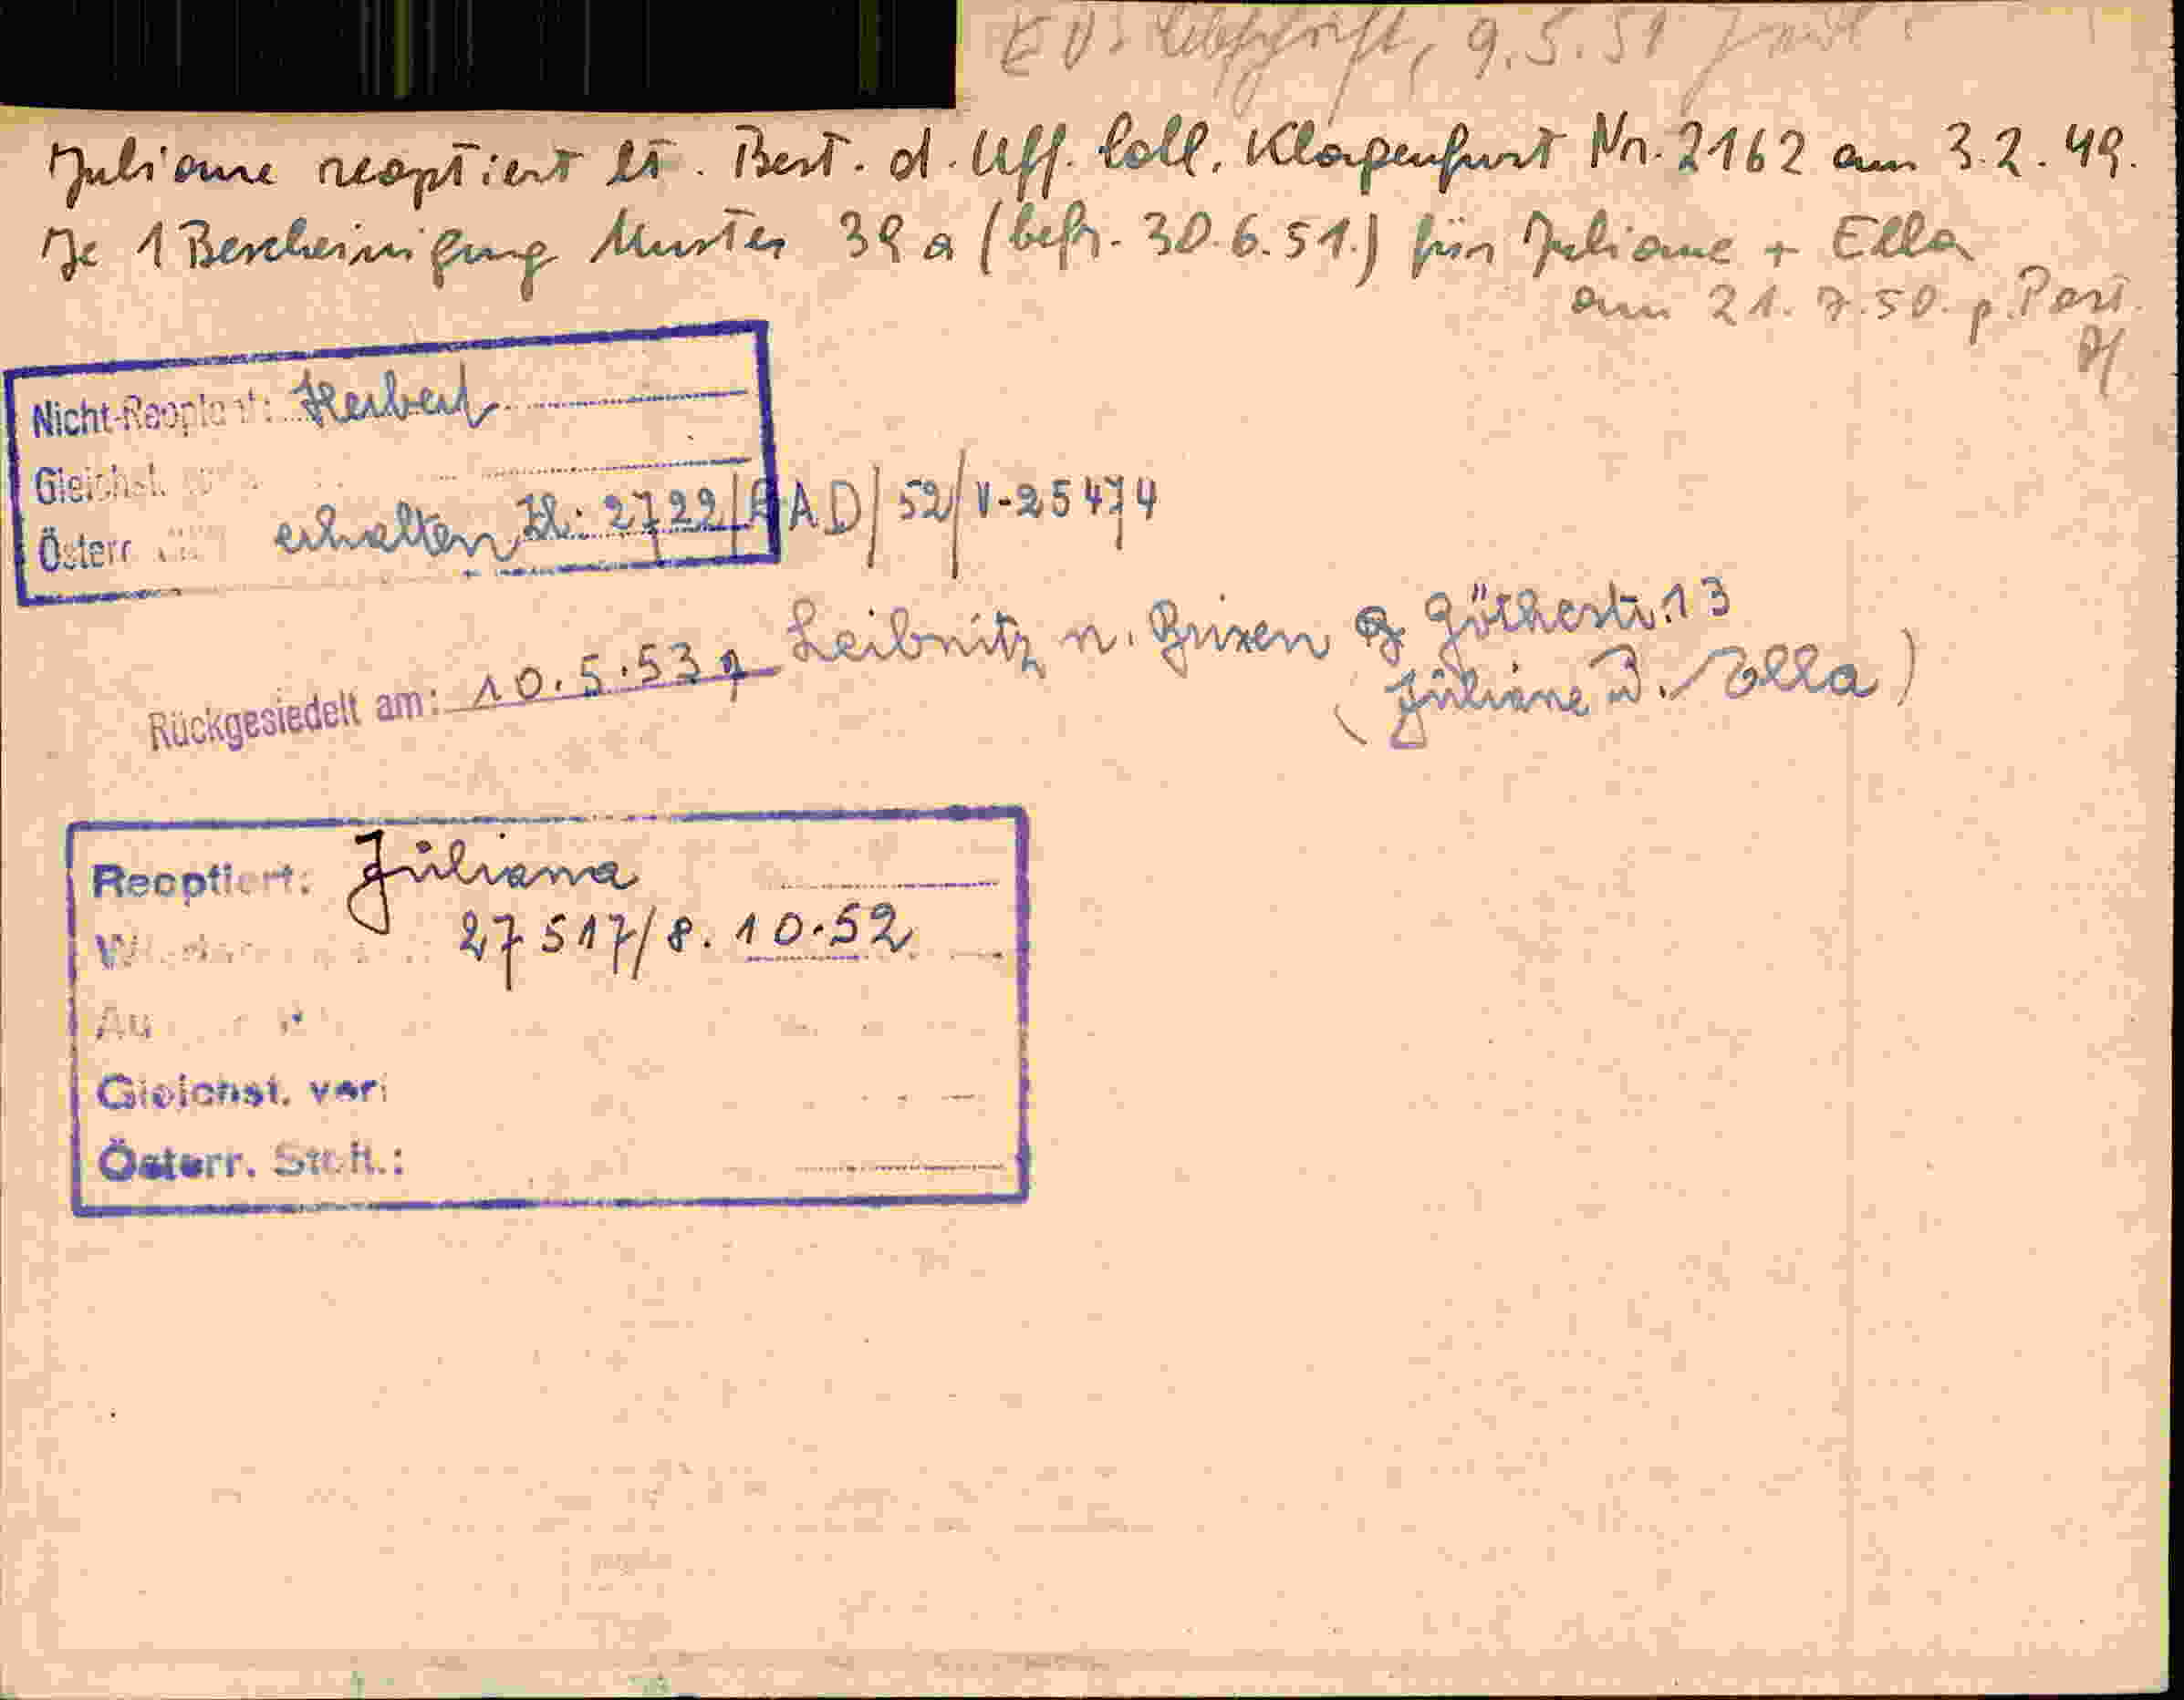 EU. Abschrift, 9.5.51
Juliane reoptiert lt. Best. d. Uff. Coll. Klagenfurt Nr. 2162 am 3.2.49.
Je 1 Bescheinigung Muster 39 a (befr. 30.6.51.) für Juliane + Ella
am 21.7.50. p. Post.
Nicht-Reoptant: Herbert
Gleichst.
Österr. erhalten Zl: 2722/RAD/52/V-25474
Rückgesiedelt am: 10.5.53 Leibnitz n. Brixen Götherstr. 13
(Juliane u. Ella)
Reoptiert: Juliana
27517/8.10.52
Gleichst. ver
Österr. Stch.: